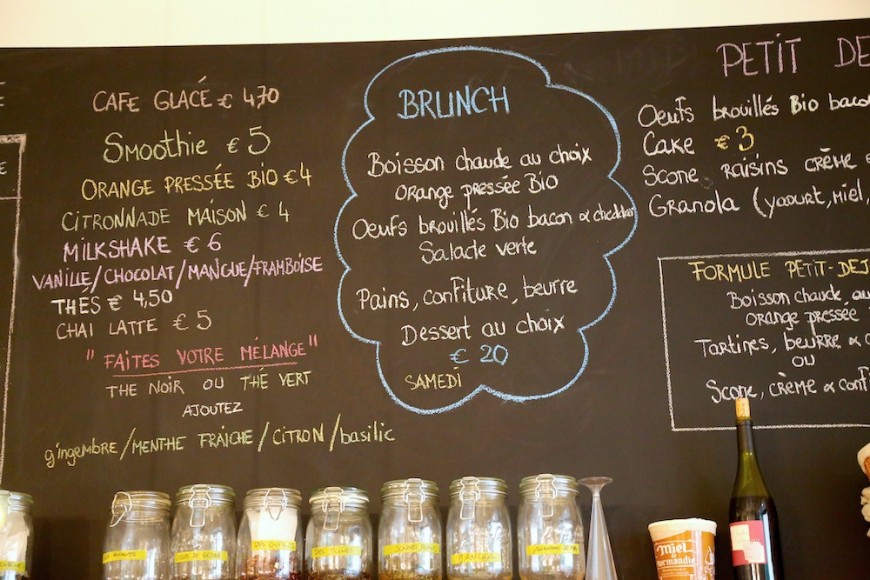 CAFE GLACÉ € 4.70
Smoothie € 5
ORANGE PRESSÉE BIO € 4
CITRONNADE MAISON € 4
MILKSHAKE € 6
VANILLE/CHOCOLAT/MANGUE/FRAMBOISE
THES € 4,50
CHAI LATTE € 5
"FAITES VOTRE MÉLANGE"
THE NOIR OU THÉ VERT
AJOUTEZ
gingembre/MENTHE FRAICHE/CITRON/basilic
BRUNCH
Boisson chaude au choix
ORange pressée Bio
Oeufs brouillés Bio bacon & cheddar
Salade verte
Pains, confiture, beurre
Dessert au choix
€ 20
SAMEDI
PETIT DE
Oeufs brouillés Bio bacon
Cake € 3
Scone raisins crème
GRanola (yaourt, miel,
FORMULE PETIT-DEJ
Boisson chaude, au
ORange pressée
Tartines, beurre &
OU
Scone, crème & confi
Miel
Normandie